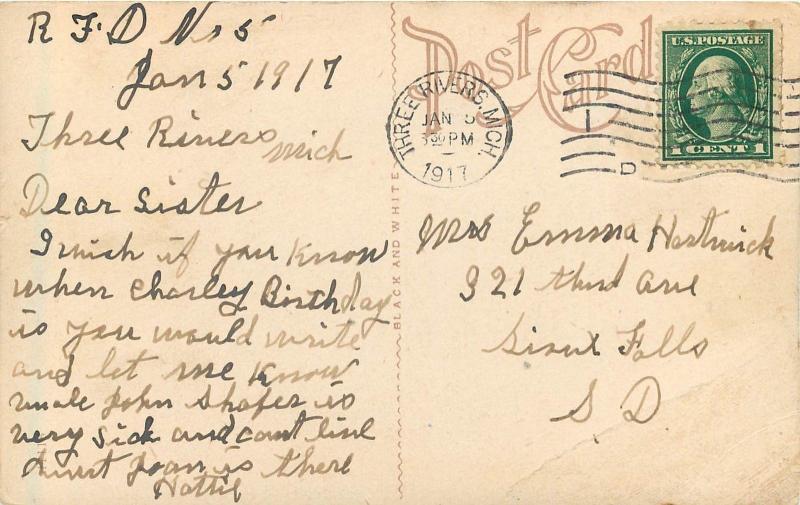 R F D No 5
Jan 5 1917
Three Rivers
Mich
Dear Sister
I wish if you Know
when Charley Birthday
is you would write
and let me Know
uncle John Shafer is
very sick and cant live
Aunt Joan is there
Hattie
BLACK AND WHITE
Post Card
THREE RIVERS, MICH.
JAN 5
3 30 PM
1917
1
D
U.S. POSTAGE
1 CENT 1
Mrs Emma Hartwick
921 third Ave
Sioux Falls
S D.